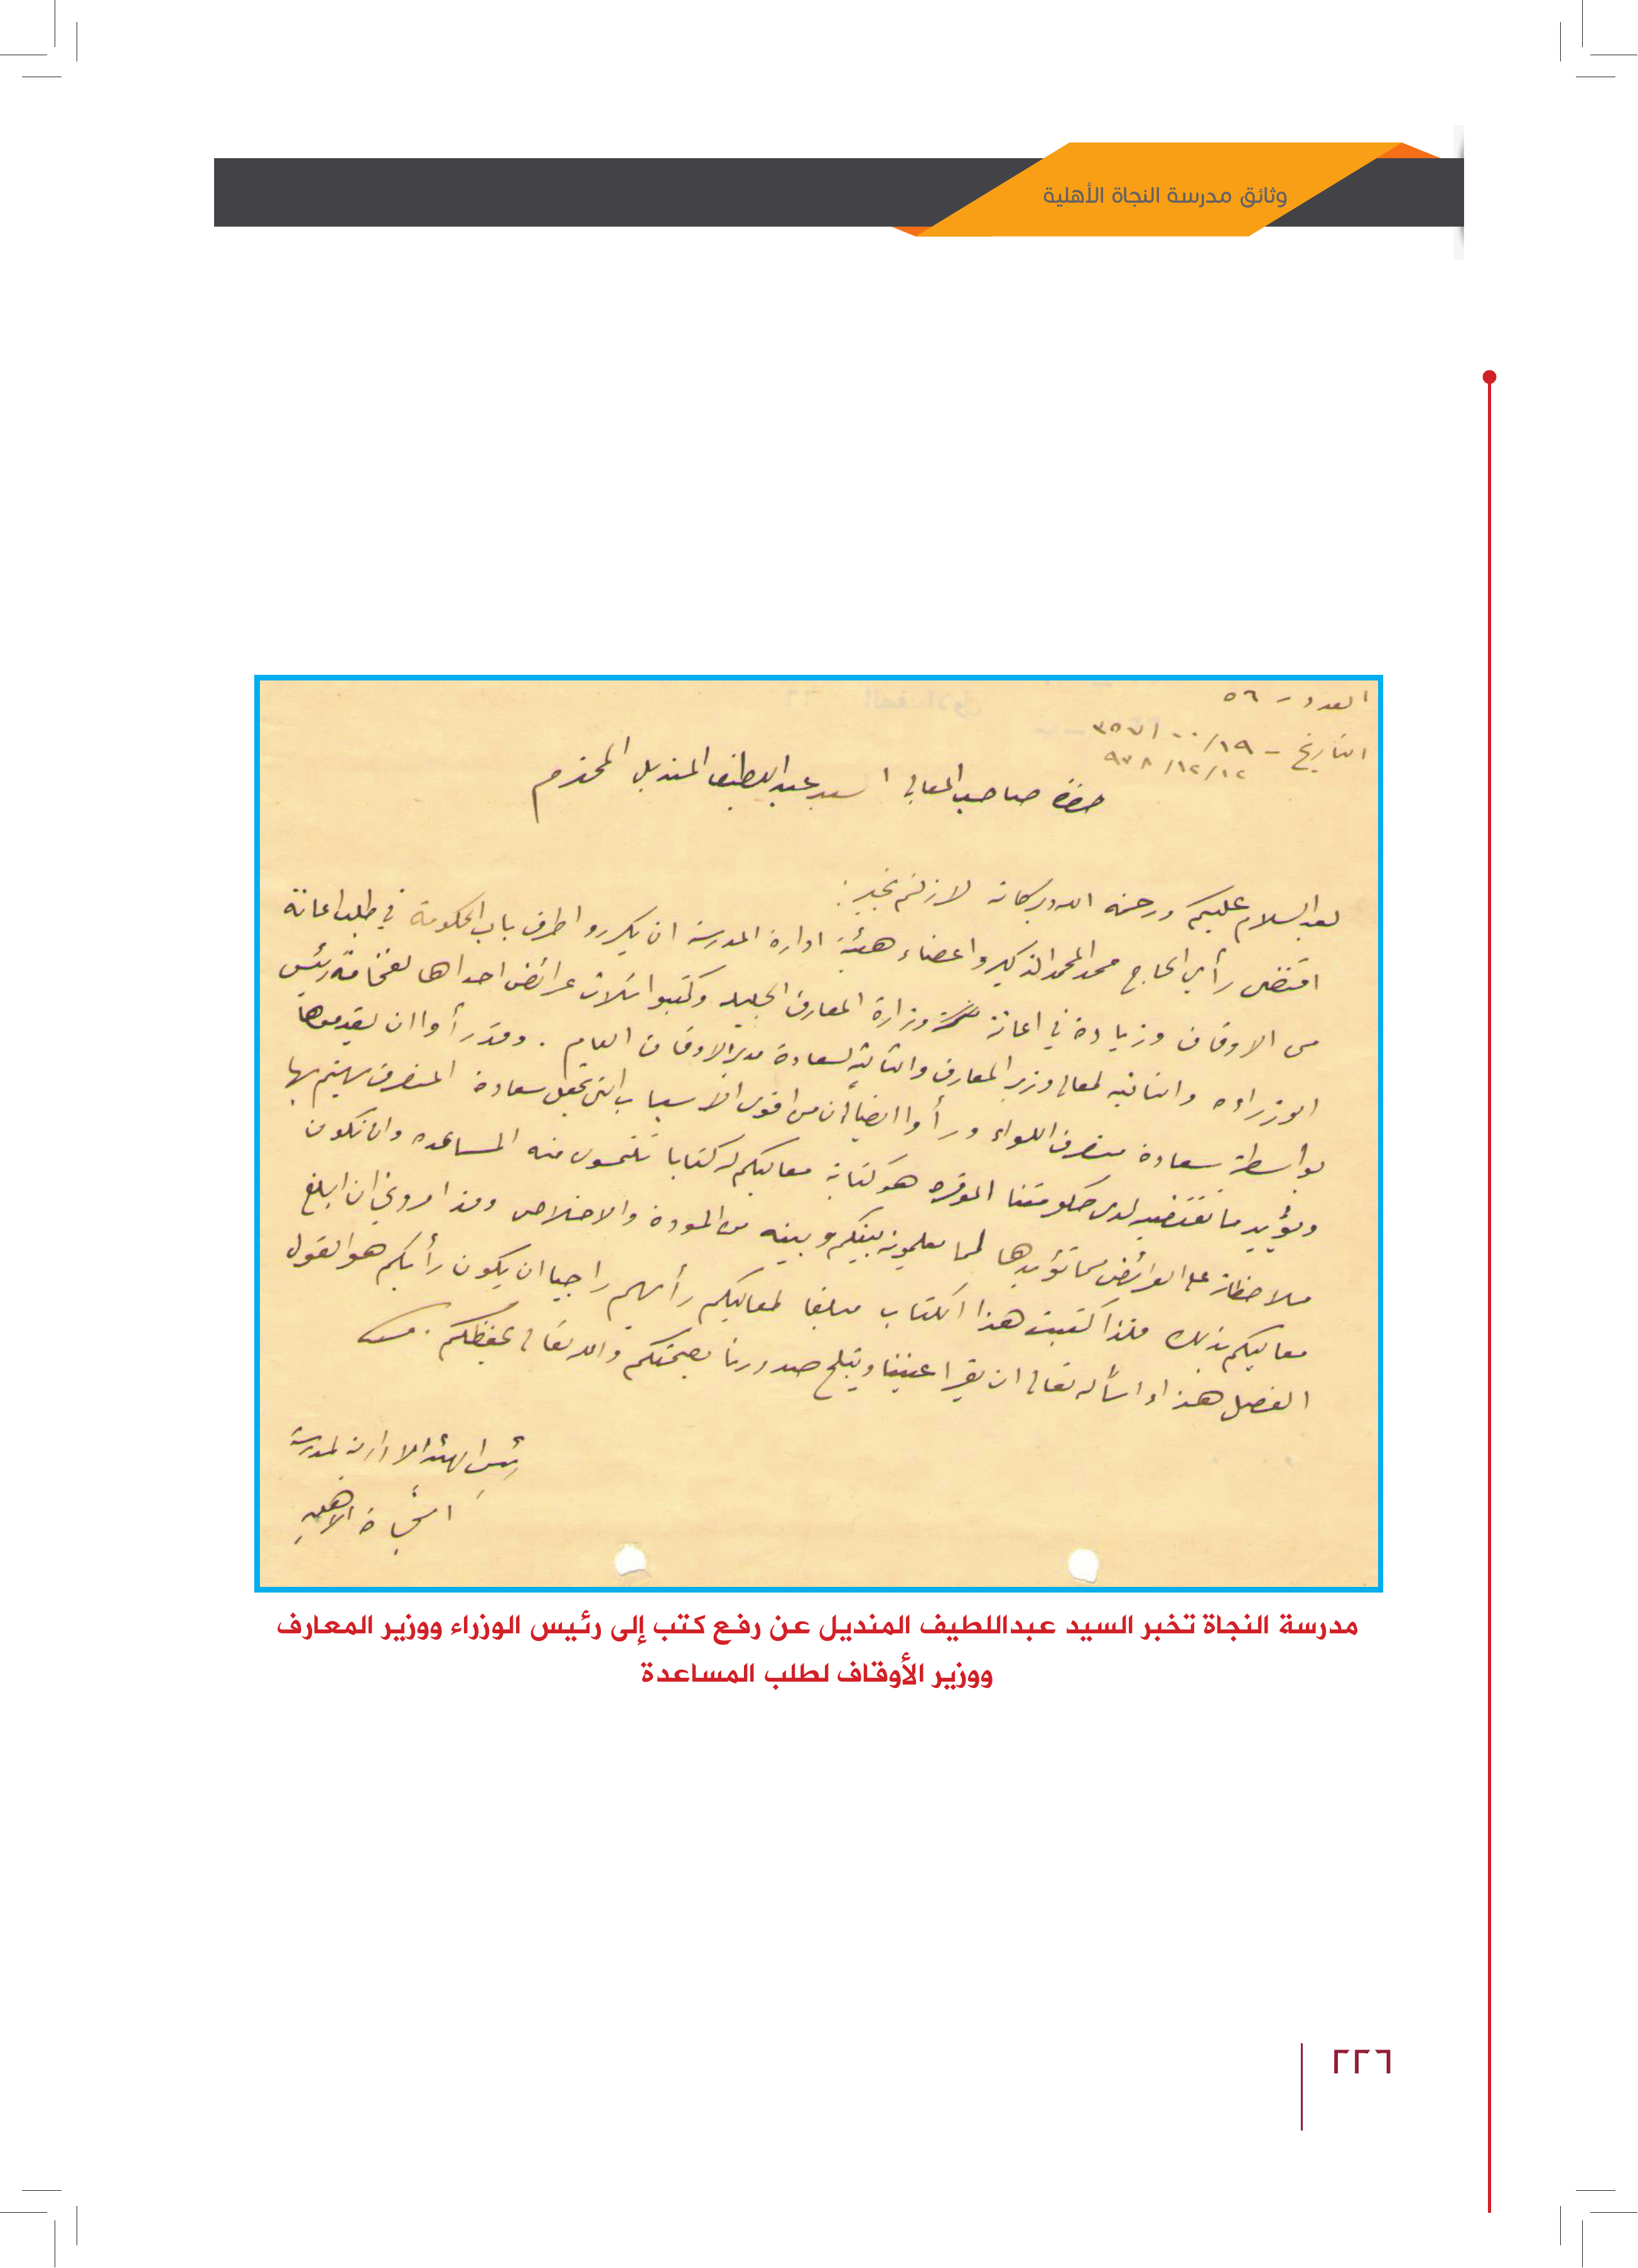 وثائق مدرسة النجاة الأهلية
العدد - ٥٦
التاريخ - ١٩/ ١٠ / ٣٥٧
١٢/١٢/ ٩٣٨
حضرة صاحب المعالي السيد عبد اللطيف المنديل المحترم
بعد السلام عليكم ورحمة الله وبركاته لازلتم بخير :
اقتضى رأي الحاج محمد المحمد الذكير واعضاء هيئة ادارة المدرسة ان يكرروا طرق باب الحكومة في طلب اعانة
من الاوقاف وزيادة في اعانة وزارة المعارف الجليله وكتبوا ثلاث عرائض احداها لفخامة رئيس
الوزراء والثانيه لمعالي وزير المعارف والثالثة لسعادة مدير الاوقاف العام . وقد رأوا ان يقدموها
بواسطة سعادة متصرف اللواء ورأوا ايضا ان من اقوى الاسباب التي تجعل سعادة المتصرف يهتم بها
ويؤيد ما تقتضيه لدى حكومتنا الموقره هو كتابة معاليكم له كتابا تلتمسون منه المساعده وان تكون
ملاحظاته على العرائض مما تؤيدها لما يعلمونه بينكم وبينه من المودة والاخلاص وقد امروني ان ابلغ
معاليكم بذلك فلذا كتبت هذا الكتاب مبلغا لمعاليكم رأيهم راجيا ان يكون رأيكم هو القول
الفصل هذا واسأله تعالى ان يقر اعيننا ويثلج صدورنا بصحتكم والله تعالى يحفظكم .
رئيس الهيئة الادارية لمدرسة
النجاة الاهلية
مدرسة النجاة تخبر السيد عبداللطيف المنديل عن رفع كتب إلى رئيس الوزراء ووزير المعارف
ووزير الأوقاف لطلب المساعدة
٢٢٦